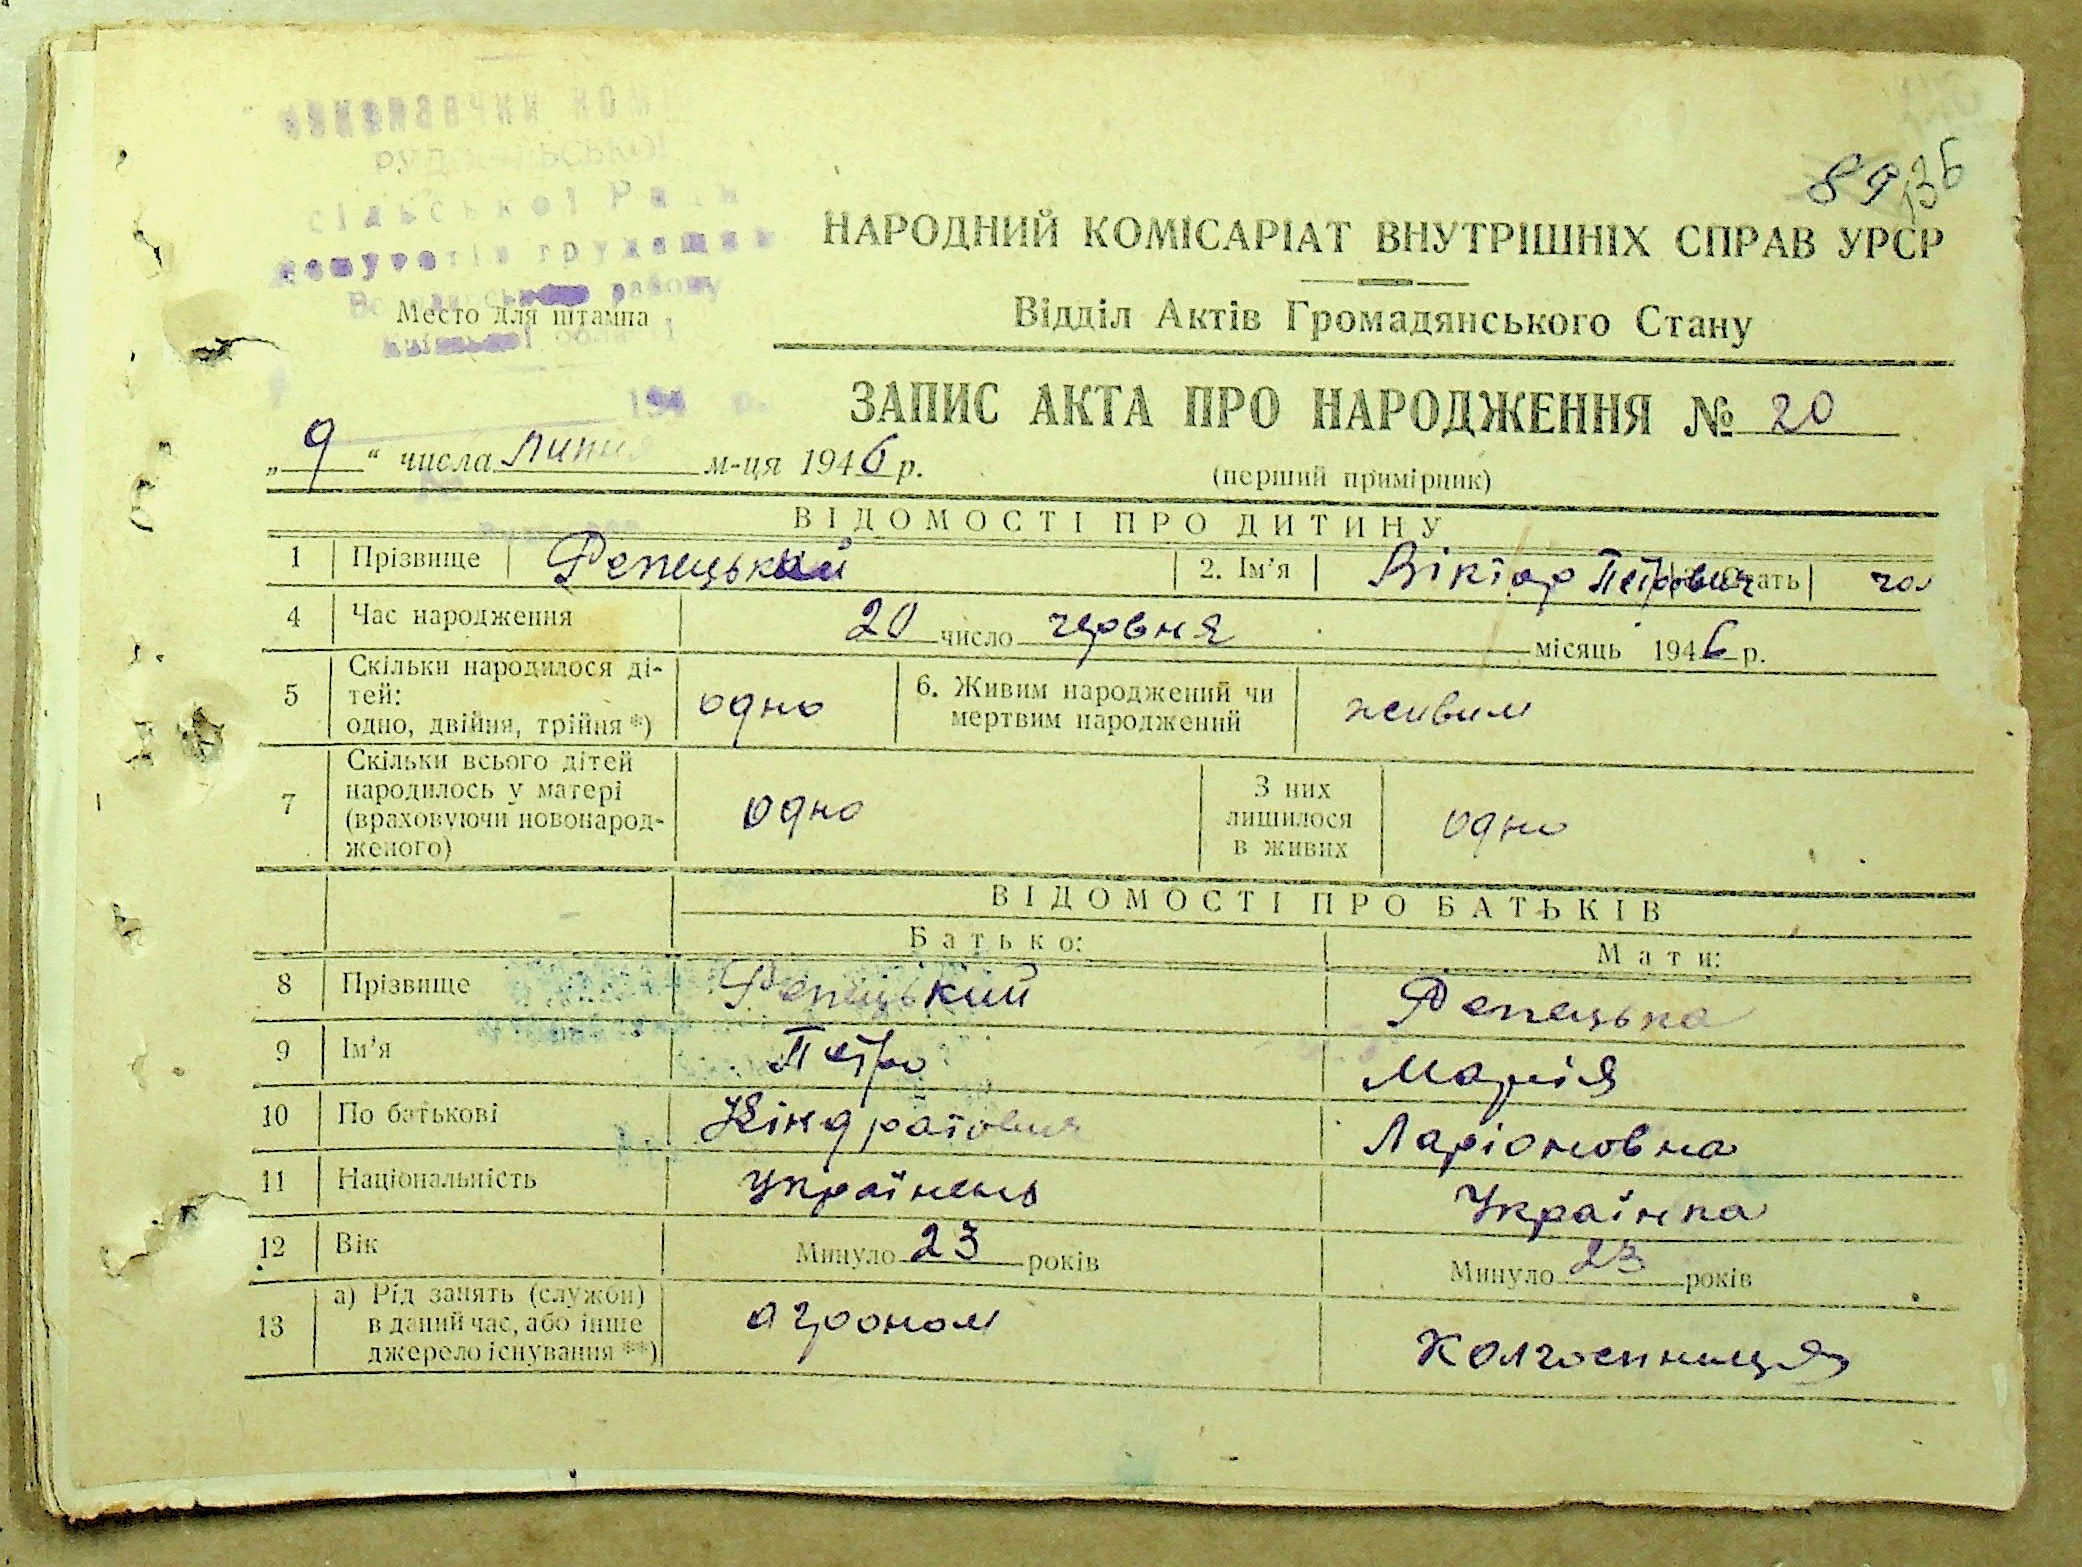 сільської Ради
депутатів трудящих
району
Место для штампа
194 р.
89 136
НАРОДНИЙ КОМІСАРІАТ ВНУТРІШНІХ СПРАВ УРСР
Відділ Актів Громадянського Стану
ЗАПИС АКТА ПРО НАРОДЖЕННЯ № 20
„ 9 “ числа липня м-ця 1946 р.
(перший примірник)
ВІДОМОСТІ ПРО ДИТИНУ
1 Прізвище Репецький 2. Ім’я Віктор Петрович Стать чол
4 Час народження 20 число червня місяць 1946 р.
5 Скільки народилося ді-
тей:
одно, двійня, трійня *) одно 6. Живим народжений чи
мертвим народжений живим
7 Скільки всього дітей
народилось у матері
(враховуючи новонарод-
женого) одно З них
лишилося
в живих одно
ВІДОМОСТІ ПРО БАТЬКІВ
Батько: Мати:
8 Прізвище Репецький Репецька
9 Ім’я Петро Марія
10 По батькові Кіндратович Ларіоновна
11 Національність Українець Українка
12 Вік Минуло 23 років Минуло 23 років
13 а) Рід занять (служби)
в даний час, або інше
джерело існування **) агроном Колгоспниця